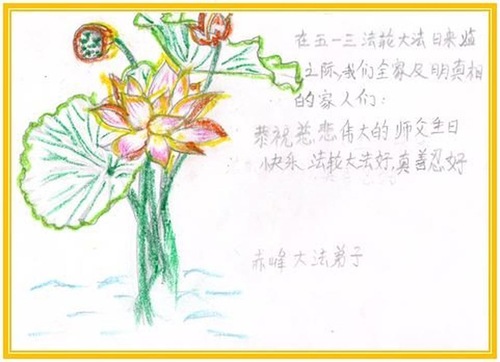 在五一三法轮大法日来临
之际,我们全家及明真相
的家人们:
恭祝慈悲伟大的师父生日
快乐 法轮大法好,真善忍好
赤峰大法弟子